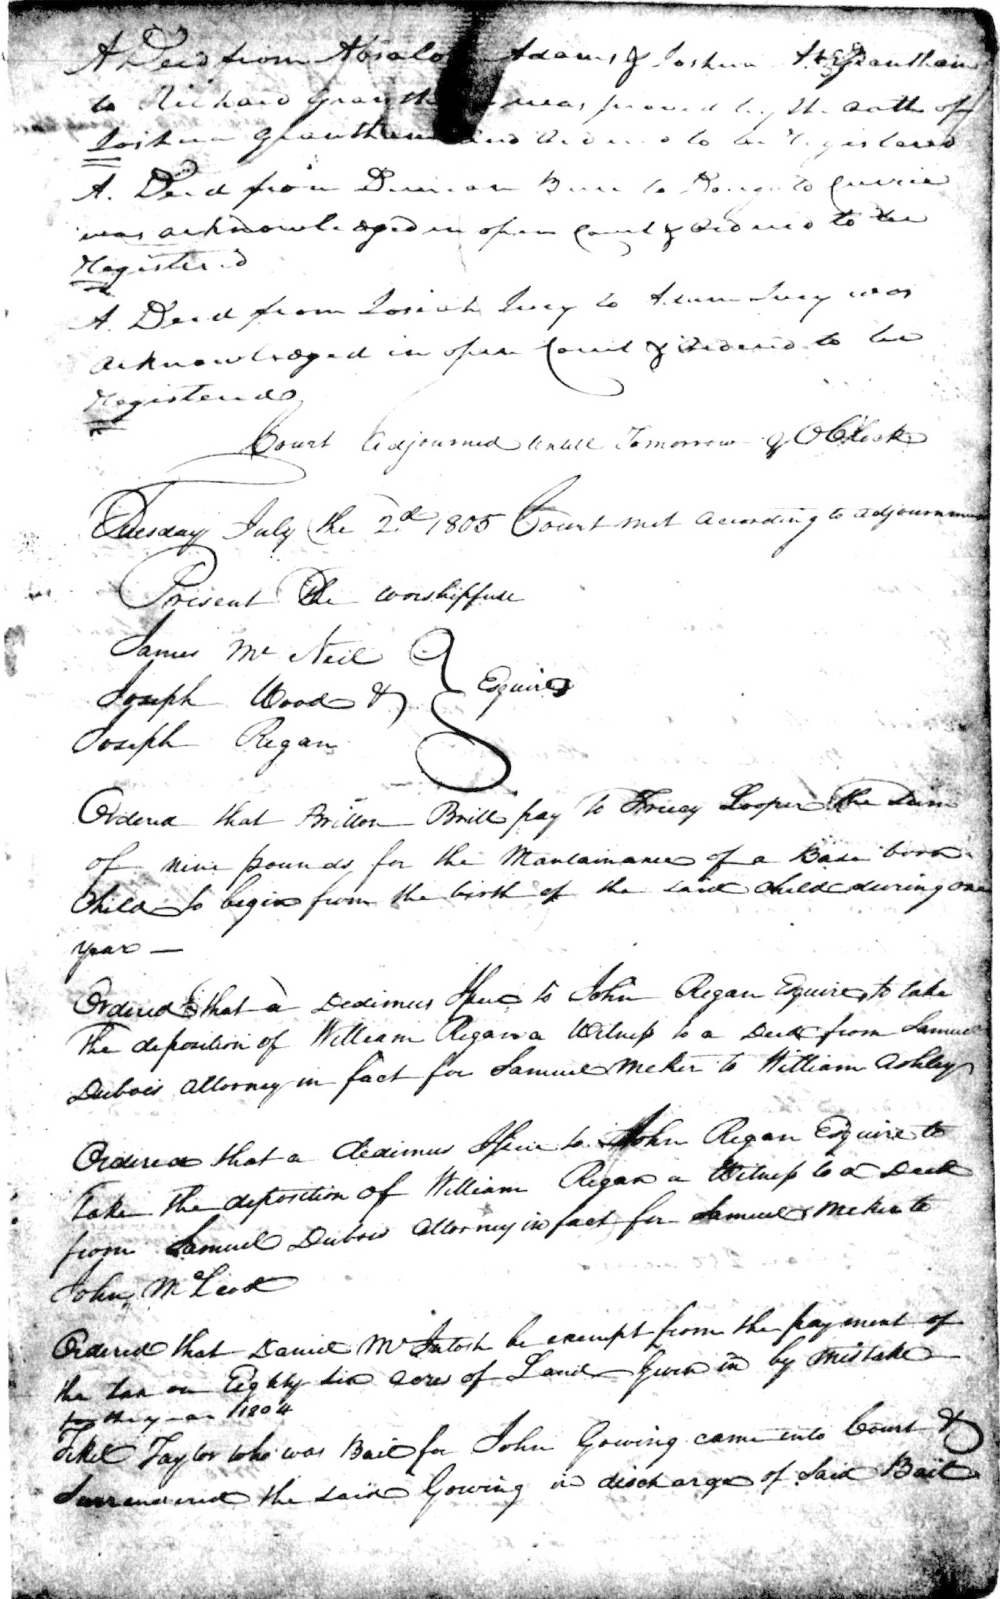 A Deed from Absalom Adams & Joshua Grantham
to Richard Grantham was proved by the oath of
Joshua Grantham and Ordered to be Registered
A. Deed from Duncan Buie to Currie
was acknowledged in open Court & Ordered to be
Registered
A. Deed from Josiah Ivey to Adam Ivey was
acknowledged in open Court & Ordered to be
Registered
Court Adjourned untill Tomorrow 9 OClock
Tuesday July the 2d 1805 Court met according to adjournment
Present The worshipfull
James Mc Neil
Joseph Wood & Esquires
Joseph Regan
Ordered that Britton Britt pay to Looper the Sum
of nine pounds for the Mantainance of a Base born
Child to begin from the birth of the said Child during one
year —
Ordered that a Dedimus Issue to John Regan Esquire to take
the deposition of William Regan a Witness to a Deed from Samuel
Dubois attorney in fact for Samuel Meker to William Ashley
Ordered that a dedimus Issue to John Regan Esquire to
Take the deposition of William Regan a Witness to a Deed
from Samuel Dubois attorney in fact for Samuel Meker to
John McLeod
Ordered that Daniel McIntosh be exempt from the payment of
the tax on Eighty Six acres of Land Given in by Mistake
for the year 1804
Tekel Taylor who was Bail for John Gowing came into Court &
Surrendered the said Gowing in discharge of said Bail